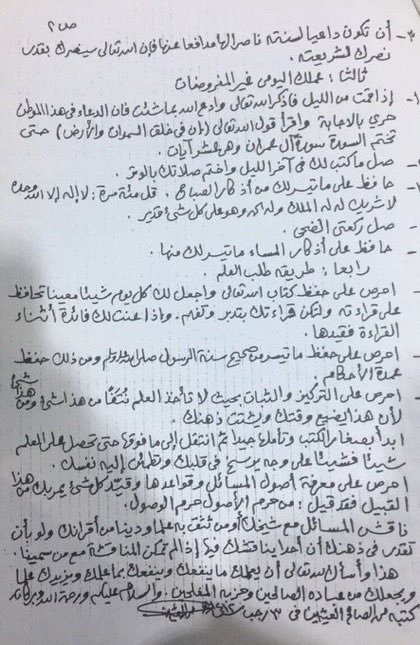 ص ٢
٣- أن تكون داعيا لسنته ناصرا لها مدافعا عنها فإن الله تعالى سينصرك بقدر
نصرك لشريعته.
ثالثا: عملك اليومي غير المفروضات
١- إذا قمت من الليل فاذكر الله تعالى وادع الله بما شئت فإن الدعاء في هذا الموطن
حري بالإجابة واقرأ قول الله تعالى (إن في خلق السموات والأرض) حتى
تختم السورة سورة آل عمران وهي عشر آيات.
- صل ما كتب لك في آخر الليل واختم صلاتك بالوتر.
- حافظ على ما تيسر لك من أذكار الصباح. قل مئة مرة: لا إله إلا الله وحده
لا شريك له له الملك وله الحمد وهو على كل شيء قدير.
- صل ركعتي الضحى.
- حافظ على أذكار المساء ما تيسر لك منها.
رابعا: طريقة طلب العلم.
- احرص على حفظ كتاب الله تعالى واجعل لك كل يوم شيئا معينا تحافظ
على قراءته ولتكن قراءتك بتدبر وتفهم. وإذا عنت لك فائدة أثناء
القراءة فقيدها.
- احرص على حفظ ما تيسر من صحيح سنة الرسول صلى الله عليه وسلم ومن ذلك حفظ
عمدة الأحكام.
- احرص على التركيز والثبات بحيث لا تأخذ العلم نتفا من هذا شيئا ومن هذا شيئا
لأن هذا يضيع وقتك ويشتت ذهنك.
ابدأ بصغار الكتب وتأملها جيدا ثم انتقل إلى ما فوقها حتى تحصل على العلم
شيئا فشيئا على وجه يرسخ في قلبك وتطمئن إليه نفسك.
احرص على معرفة أصول المسائل وقواعدها وقيد كل شيء يمر بك من هذا
القبيل فقد قيل: من حرم الأصول حرم الوصول.
ناقش المسائل مع شيخك أو من تثق به علما ودينا من أقرانك ولو بأن
تقدر في ذهنك أن أحدا يناقشك فيها إذا لم تمكن المناقشة مع من سمينا.
هذا وأسأل الله تعالى أن يعلمك ما ينفعك وينفعك بما علمك ويزيدك علما
ويجعلك من عباده الصالحين وحزبه المفلحين. والسلام عليكم ورحمة الله وبركاته
كتبه محمد الصالح العثيمين في ٣ رجب